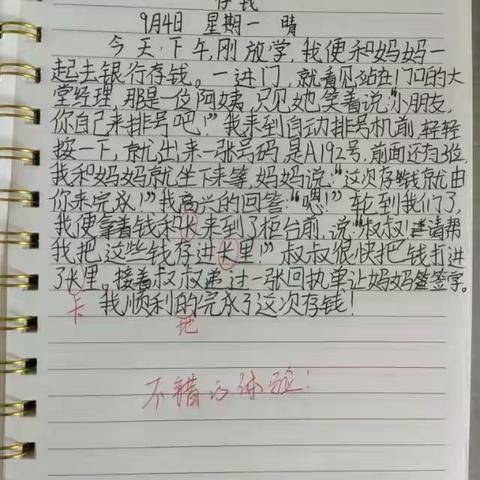 存钱
9月4日 星期一 晴
今天下午,刚放学,我便和妈妈一
起去银行存钱。一进门,就看见站在门口的大
堂经理,那是一位阿姨,只见她笑着说:“小朋友,
你自己来排号吧!”我来到自动排号机前,轻轻
按一下,就出来一张号码,是A192号,前面还有3位,
我和妈妈就坐下来等,妈妈说:“这次存钱就由
你来完成!”我高兴的回答:“嗯!”轮到我们了,
我便拿着钱和卡来到了柜台前,说:“叔叔!请帮
我把这些钱存进卡里!”叔叔很快把钱打进
了卡里。接着叔叔递过一张回执单让妈妈签签字。
卡
我顺利的完成了这次存钱!
地
不错的体验!